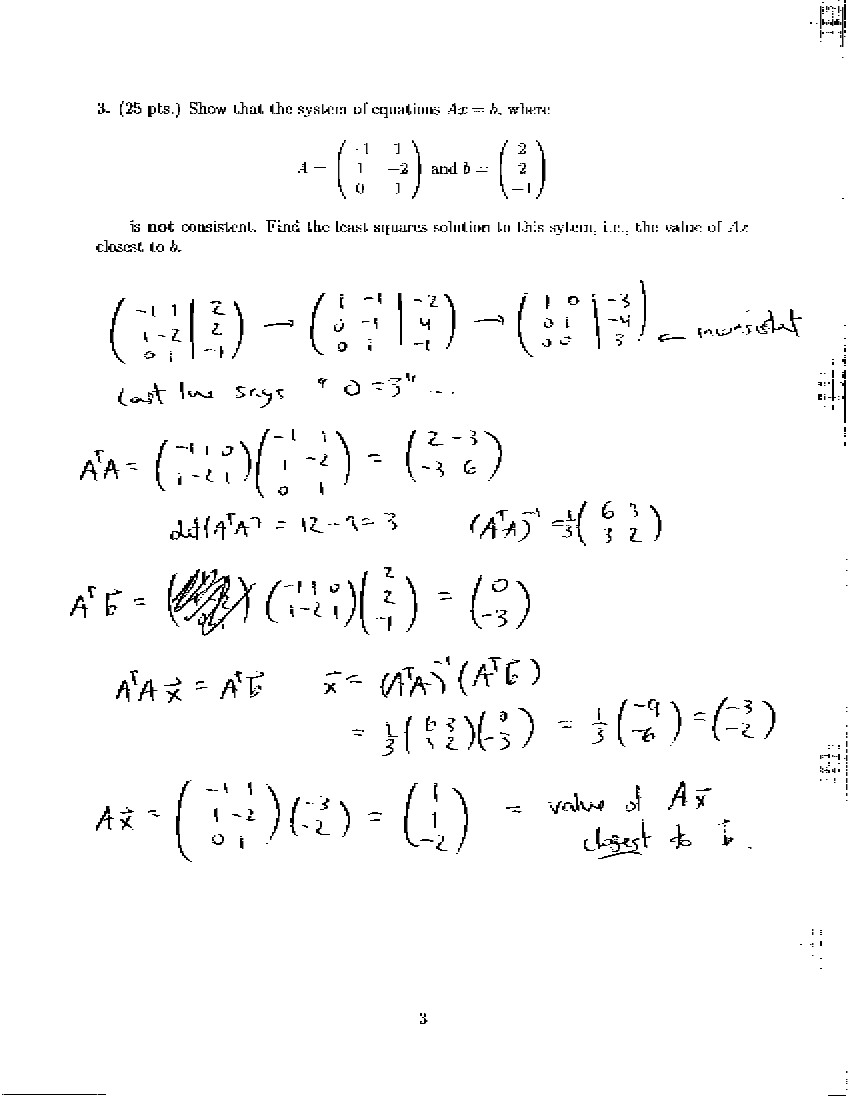 3. (25 pts.) Show that the system of equations Ax = b, where
A = ( -1 1 ; 1 -2 ; 0 1 ) and b = ( 2 ; 2 ; -1 )
is not consistent. Find the least squares solution to this sytem, i.e., the value of Ax
closest to b.
( -1 1 | 2 ; 1 -2 | 2 ; 0 1 | -1 ) → ( 1 -1 | -2 ; 0 -1 | 4 ; 0 1 | -1 ) → ( 1 0 | -3 ; 0 1 | -4 ; 0 0 | 3 ) ← inconsistent
Last line says " 0 = 3" ...
AᵀA = ( -1 1 0 ; 1 -2 1 )( -1 1 ; 1 -2 ; 0 1 ) = ( 2 -3 ; -3 6 )
det(AᵀA) = 12 - 9 = 3 (AᵀA)⁻¹ = 1/3 ( 6 3 ; 3 2 )
Aᵀb⃗ = ( -1 1 0 ; 1 -2 1 )( 2 ; 2 ; -1 ) = ( 0 ; -3 )
AᵀA x⃗ = Aᵀb⃗ x⃗ = (AᵀA)⁻¹ (Aᵀb⃗)
= 1/3 ( 6 3 ; 3 2 )( 0 ; -3 ) = 1/3 ( -9 ; -6 ) = ( -3 ; -2 )
Ax⃗ = ( -1 1 ; 1 -2 ; 0 1 )( -3 ; -2 ) = ( 1 ; 1 ; -2 ) = value of Ax⃗
closest to b⃗.
3